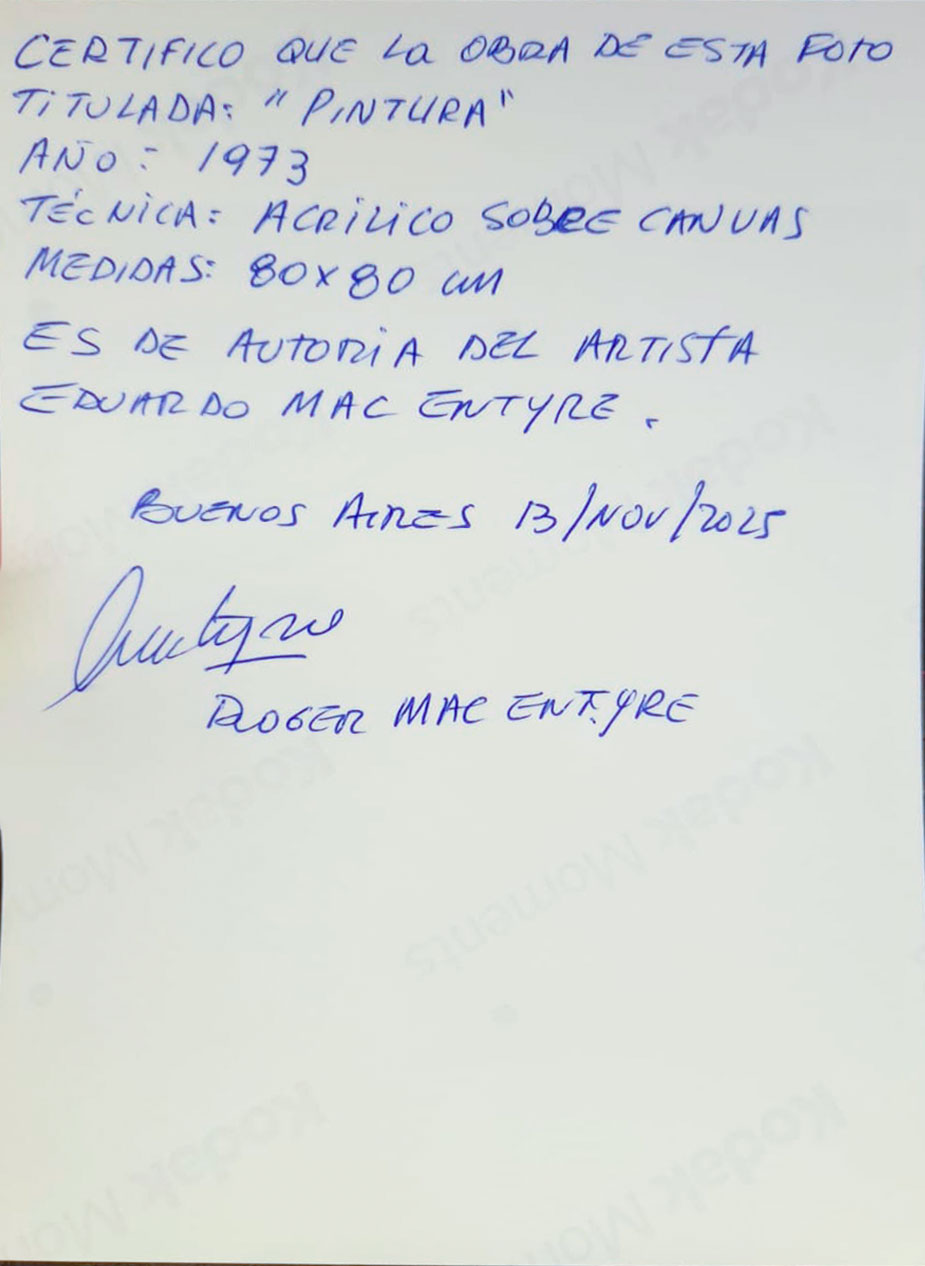 CERTIFICO QUE La OBRA DE ESTA FOTO
TiTULADA: "PiNTURA"
AÑO: 1973
TÉCNiCA: ACRÍLICO SOBRE CANVAS
MEDIDAS: 80x80 cm
ES DE AUTORiA DEL ARTISTA
EDUARDO MAC ENTYRE.
BUENOS AIRES 13/NOV/2025
ROGER MAC ENTYRE
Kodak Moments
Kodak Moments
Kodak Moments